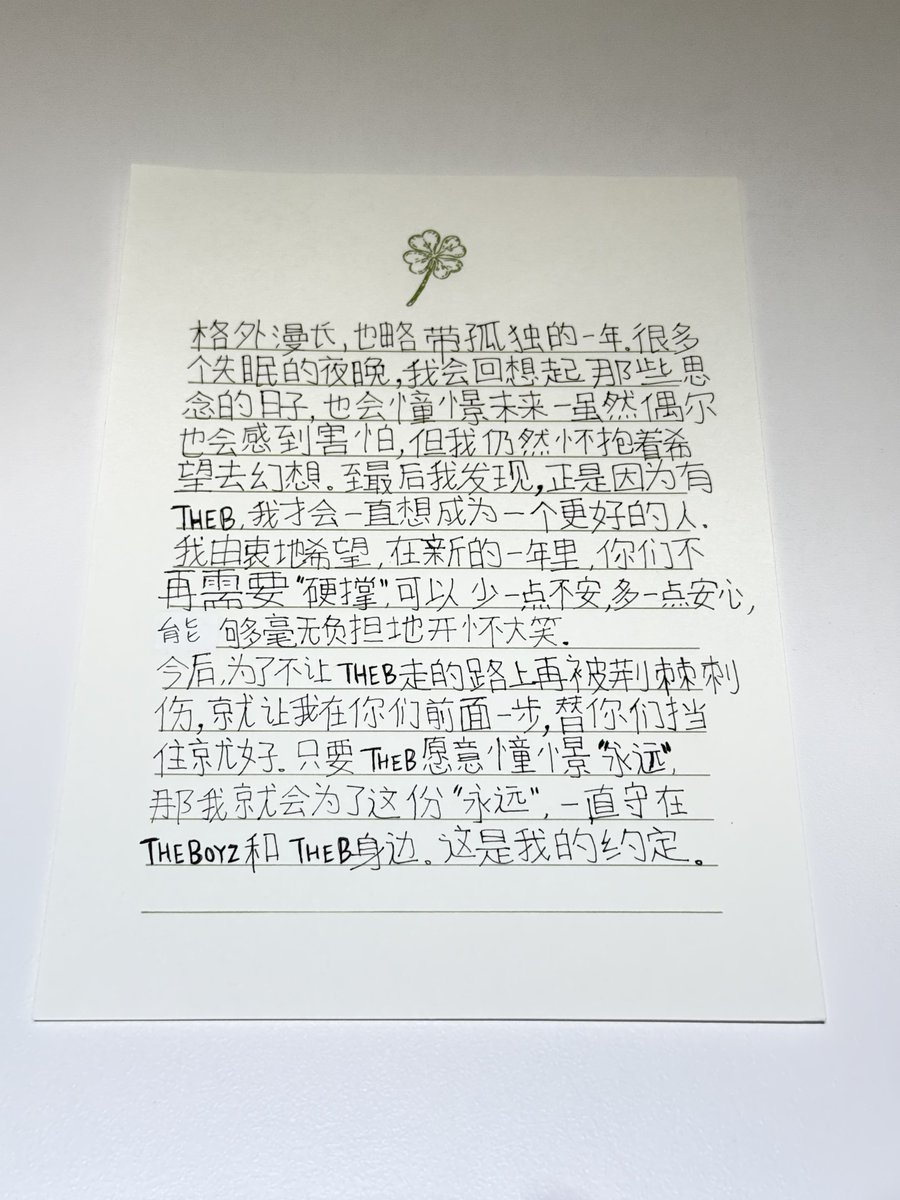 格外漫长,也略带孤独的一年.很多
个失眠的夜晚,我会回想起那些思
念的日子,也会憧憬未来一虽然偶尔
也会感到害怕,但我仍然怀抱着希
望去幻想。至最后我发现,正是因为有
THEB,我才会一直想成为一个更好的人.
我由衷地希望,在新的一年里,你们不
再需要"硬撑",可以少一点不安,多一点安心,
能够毫无负担地开怀大笑.
今后,为了不让THEB走的路上再被荆棘刺
伤,就让我在你们前面一步,替你们挡
住就好。只要THEB愿意憧憬"永远",
那我就会为了这份"永远",一直守在
THEBOYZ和THEB身边。这是我的约定。